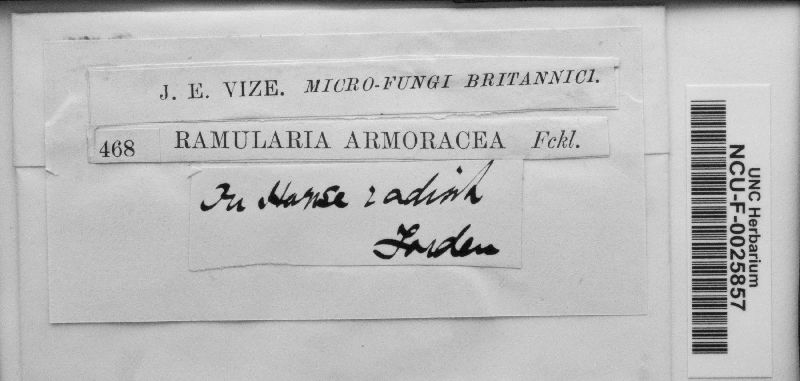 J. E. VIZE. MICRO-FUNGI BRITANNICI.
468 RAMULARIA ARMORACEA Fckl.
On Horse radish
Forden
UNC Herbarium
NCU-F-0025857